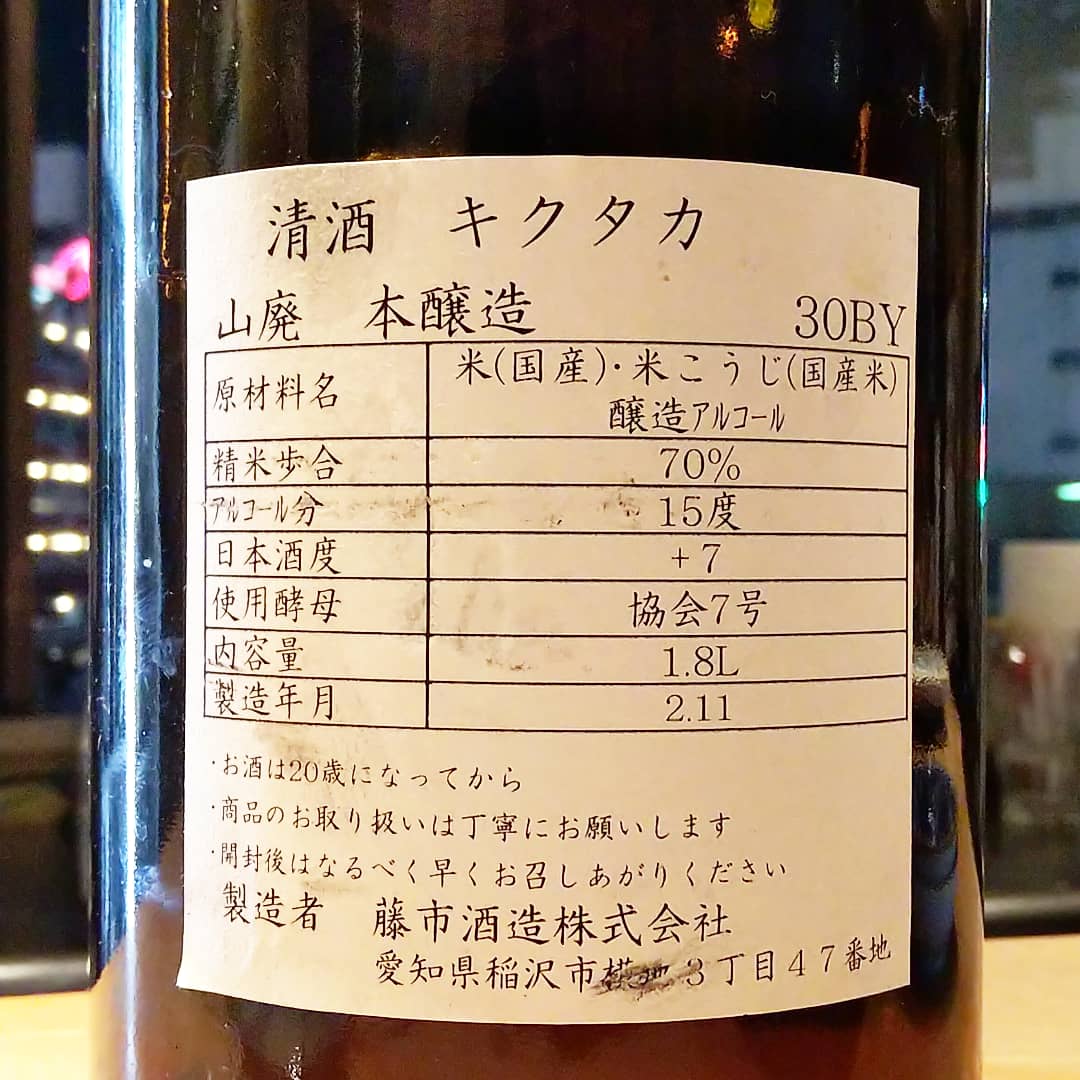 清酒 キクタカ
山廃 本醸造 30BY
原材料名 米(国産)・米こうじ(国産米)
醸造アルコール
精米歩合 70%
アルコール分 15度
日本酒度 +7
使用酵母 協会7号
内容量 1.8L
製造年月 2.11
・お酒は20歳になってから
・商品のお取り扱いは丁寧にお願いします
・開封後はなるべく早くお召しあがりください
製造者 藤市酒造株式会社
愛知県稲沢市 3丁目47番地